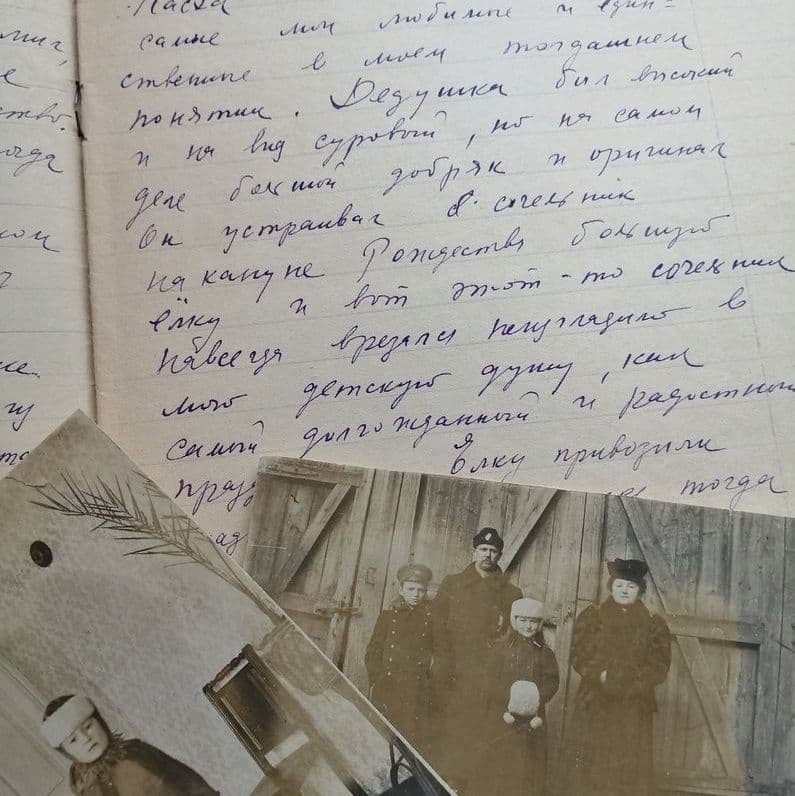 Пасха
самые мои любимые и един=
ственные в моем тогдашнем
понятии. Дедушка был высокий
и на вид суровый, но на самом
деле большой добряк и оригинал
Он устраивал в сочельник
накануне Рождества большую
ёлку и вот этот-то сочельник
навсегда врезался неизгладимо в
мою детскую душу, как
самый долгожданный и радостный
Ёлку привозили
тогда